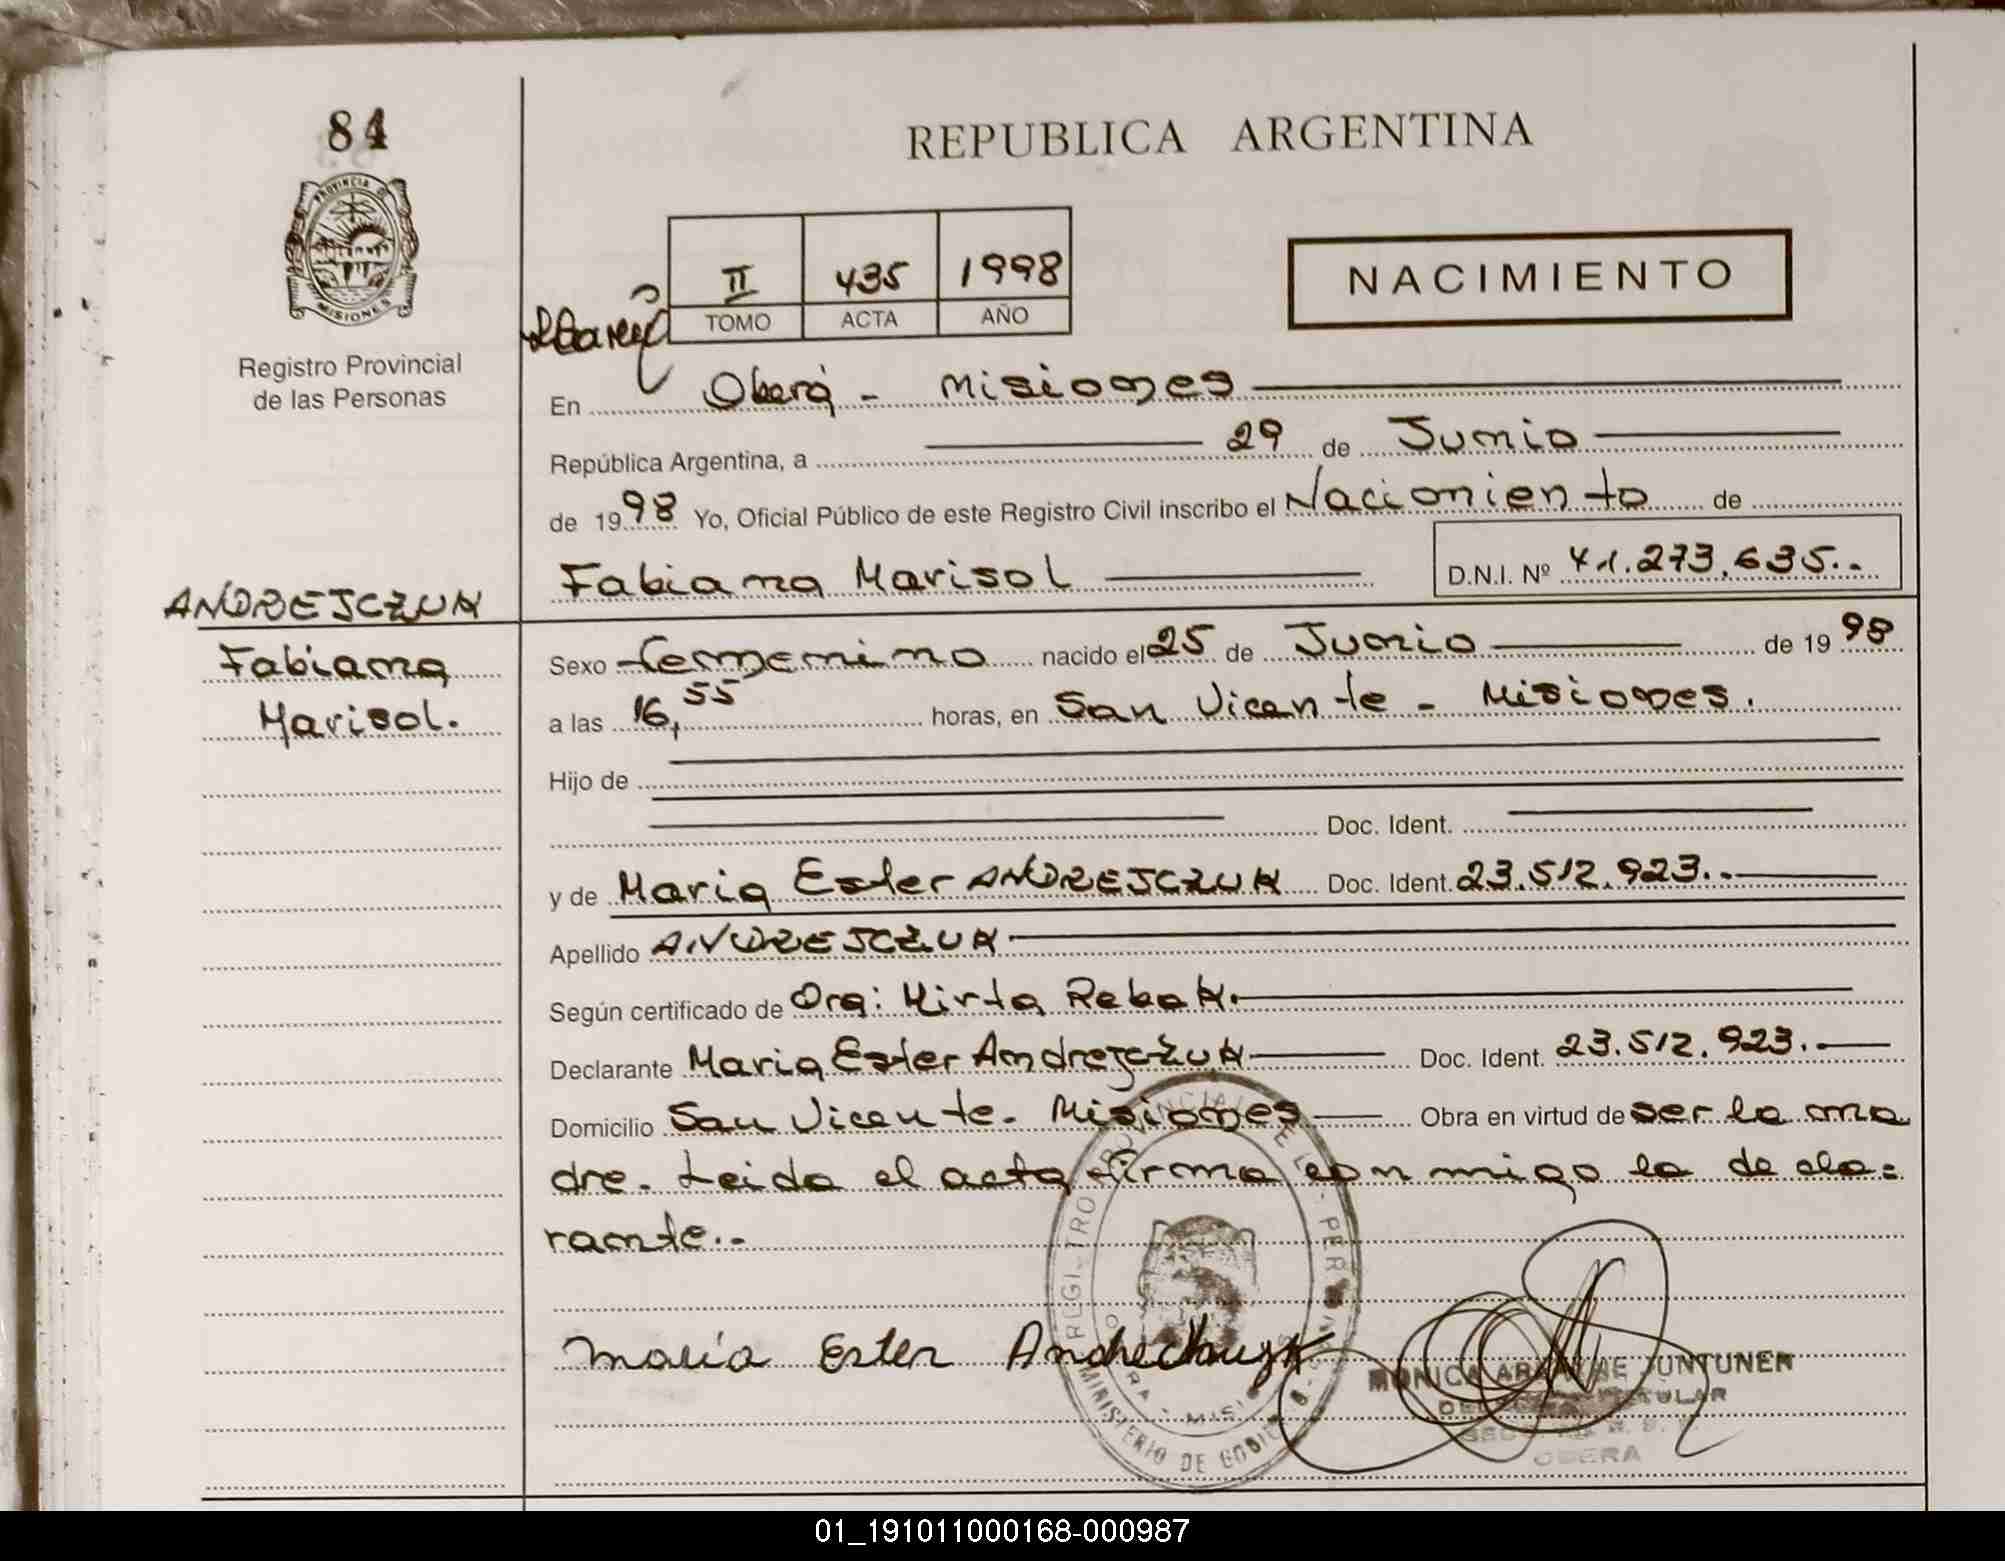 84
REPUBLICA ARGENTINA
PROVINCIA D
MISIONES
II 435 1998
TOMO ACTA AÑO
NACIMIENTO
Registro Provincial
de las Personas
En Oberá - Misiones
República Argentina, a 29 de Junio
de 1998 Yo, Oficial Público de este Registro Civil inscribo el Nacimiento de
Fabiana Marisol D.N.I. Nº 41.273.635..
ANDREJCZUK
Fabiana
Marisol.
Sexo femenino nacido el 25 de Junio de 1998
a las 16,55 horas, en San Vicente - Misiones.
Hijo de
Doc. Ident.
y de Maria Ester ANDREJCZUK Doc. Ident. 23.512.923.-
Apellido ANDREJCZUK
Según certificado de Dra: Mirta Rebak.
Declarante Maria Ester Andrejczuk Doc. Ident. 23.512.923.
Domicilio San Vicente. Misiones Obra en virtud de ser la ma
dre. Leida el acta firma conmigo la decla=
rante..
Maria Ester
MONICA JUNTUNEN
TITULAR
OBERA
MINISTERIO DE GOBIE
01_191011000168-000987